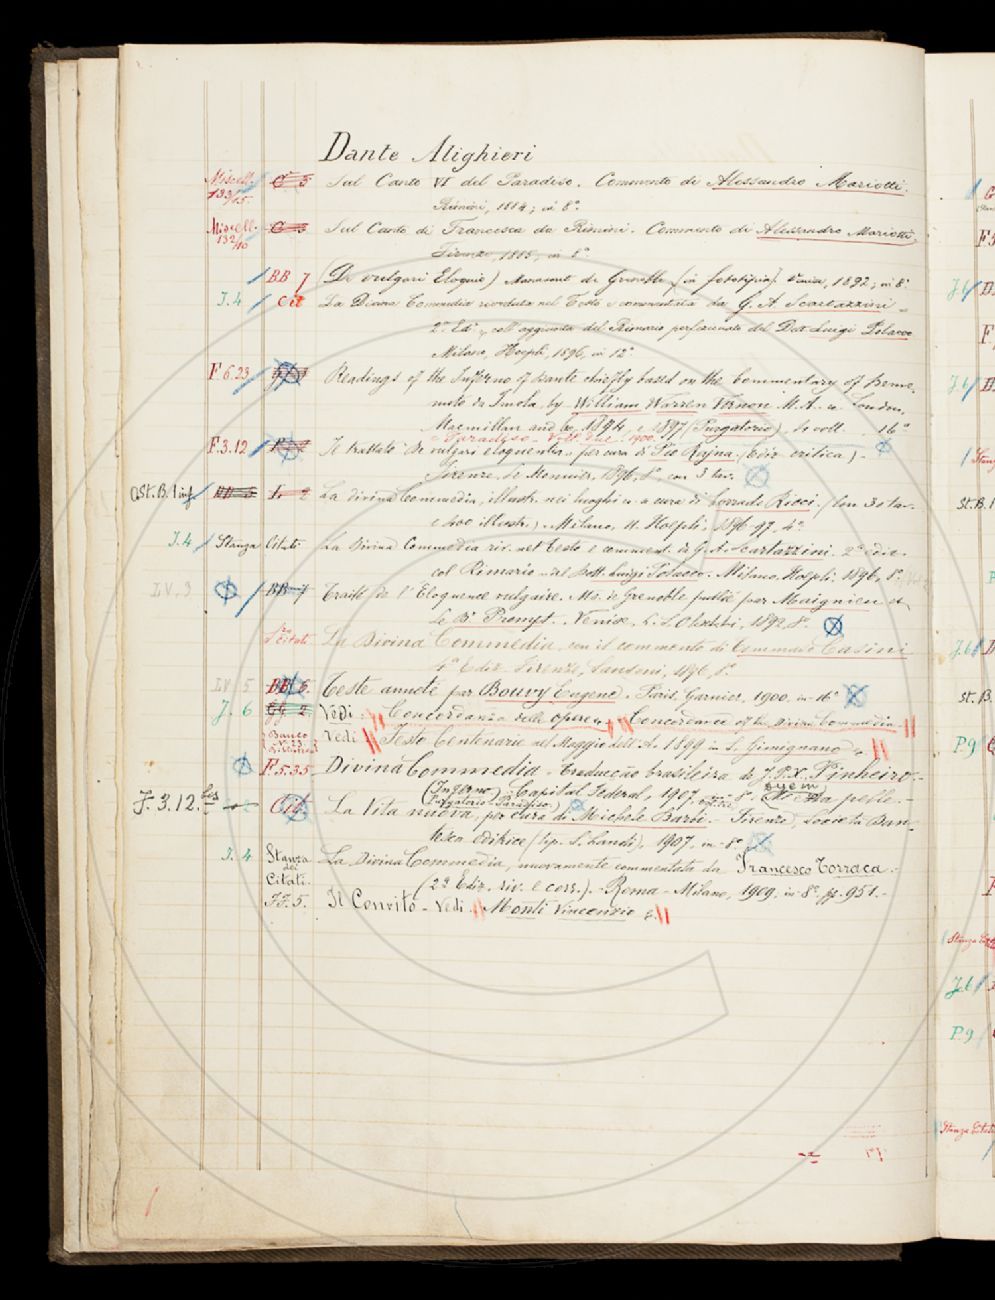 Dante Alighieri
Miscell. 132/15 C 5 Sul Canto VI del Paradiso. Commento di Alessandro Mariotti.
Rimini, 1884; in 8°
Miscell. 132/10 C 5 Sul Canto di Francesca da Rimini. Commento di Alessandro Mariotti,
Firenze, 1885, in 8°
BB 7 (De vulgari Eloquio) Manuscrit de Grenoble (in fototipia). Venise, 1892; in 8°
J. 4 Cit La Divina Commedia riveduta nel Testo e commentata da G. A. Scartazzini
2ª Ediz. coll'aggiunta del Rimario perfezionato del Dott. Luigi Polacco
Milano, Hoepli, 1896, in 12°
F 6.23 Readings of the Inferno of Dante chiefly based on the Commentary of Benve-
nuto da Imola, by William Warren Vernon M. A. London,
Macmillan and Co, 1894, e 1897 (Purgatorio), 16°
Paradiso - Voll. due. 1900.
F.3.12 Il trattato De vulgari eloquentia per cura di Pio Rajna. (Ediz. critica) -
Firenze, Le Monnier, 1896, 8°, con 3 tav.
Ast. B. 1 inf. La divina Commedia, illustr. nei luoghi a cura di Corrado Ricci. (Con 30 tav.
e 400 illustr.) Milano, U. Hoepli, 1896-97, 4°
J. 4 Stanza Citati La Divina Commedia riv. nel testo e comment. da G. A. Scartazzini. 2ª ediz.
col Rimario del Dott. Luigi Polacco. Milano, Hoepli, 1896, 8°
LV. 3 BB 7 Traité de l'Eloquence vulgaire. Ms. de Grenoble publié par Maignien et
le Dr Prompt. Venise, L. S. Olschki, 1892, 8°
Citati La Divina Commedia, con il commento di Tommaso Casini
4ª Ediz. Firenze, Sansoni, 1896, 8°
LV 5 BB 6. Teste annoté par Bouvy Eugène. Paris, Garnier, 1900, in 16°
J. 6 GG 2 Vedi Concordanza delle opere, Concordance of the Divina Commedia
Banco Vedi Sesto Centenario nel Maggio dell'A. 1899 in S. Gimignano
F.5.35 Divina Commedia - Traducção brasileira de J. P. X. Pinheiro.-
(Inferno) Capital Federal, 1907, 8°
(Purgatorio-Paradiso)
J. 3.12. bis Cit. La Vita nuova, per cura di Michele Barbi.- Firenze, Società Dan-
tesca editrice (tip. S. Landi), 1907, in-8°
J. 4 Stanza dei Citati. La Divina Commedia, nuovamente commentata da Francesco Torraca.
(2ª Ediz. riv. e corr.).- Roma - Milano, 1909, in 8°, pp. 951.-
FF. 5. Il Convito - Vedi Monti Vincenzo